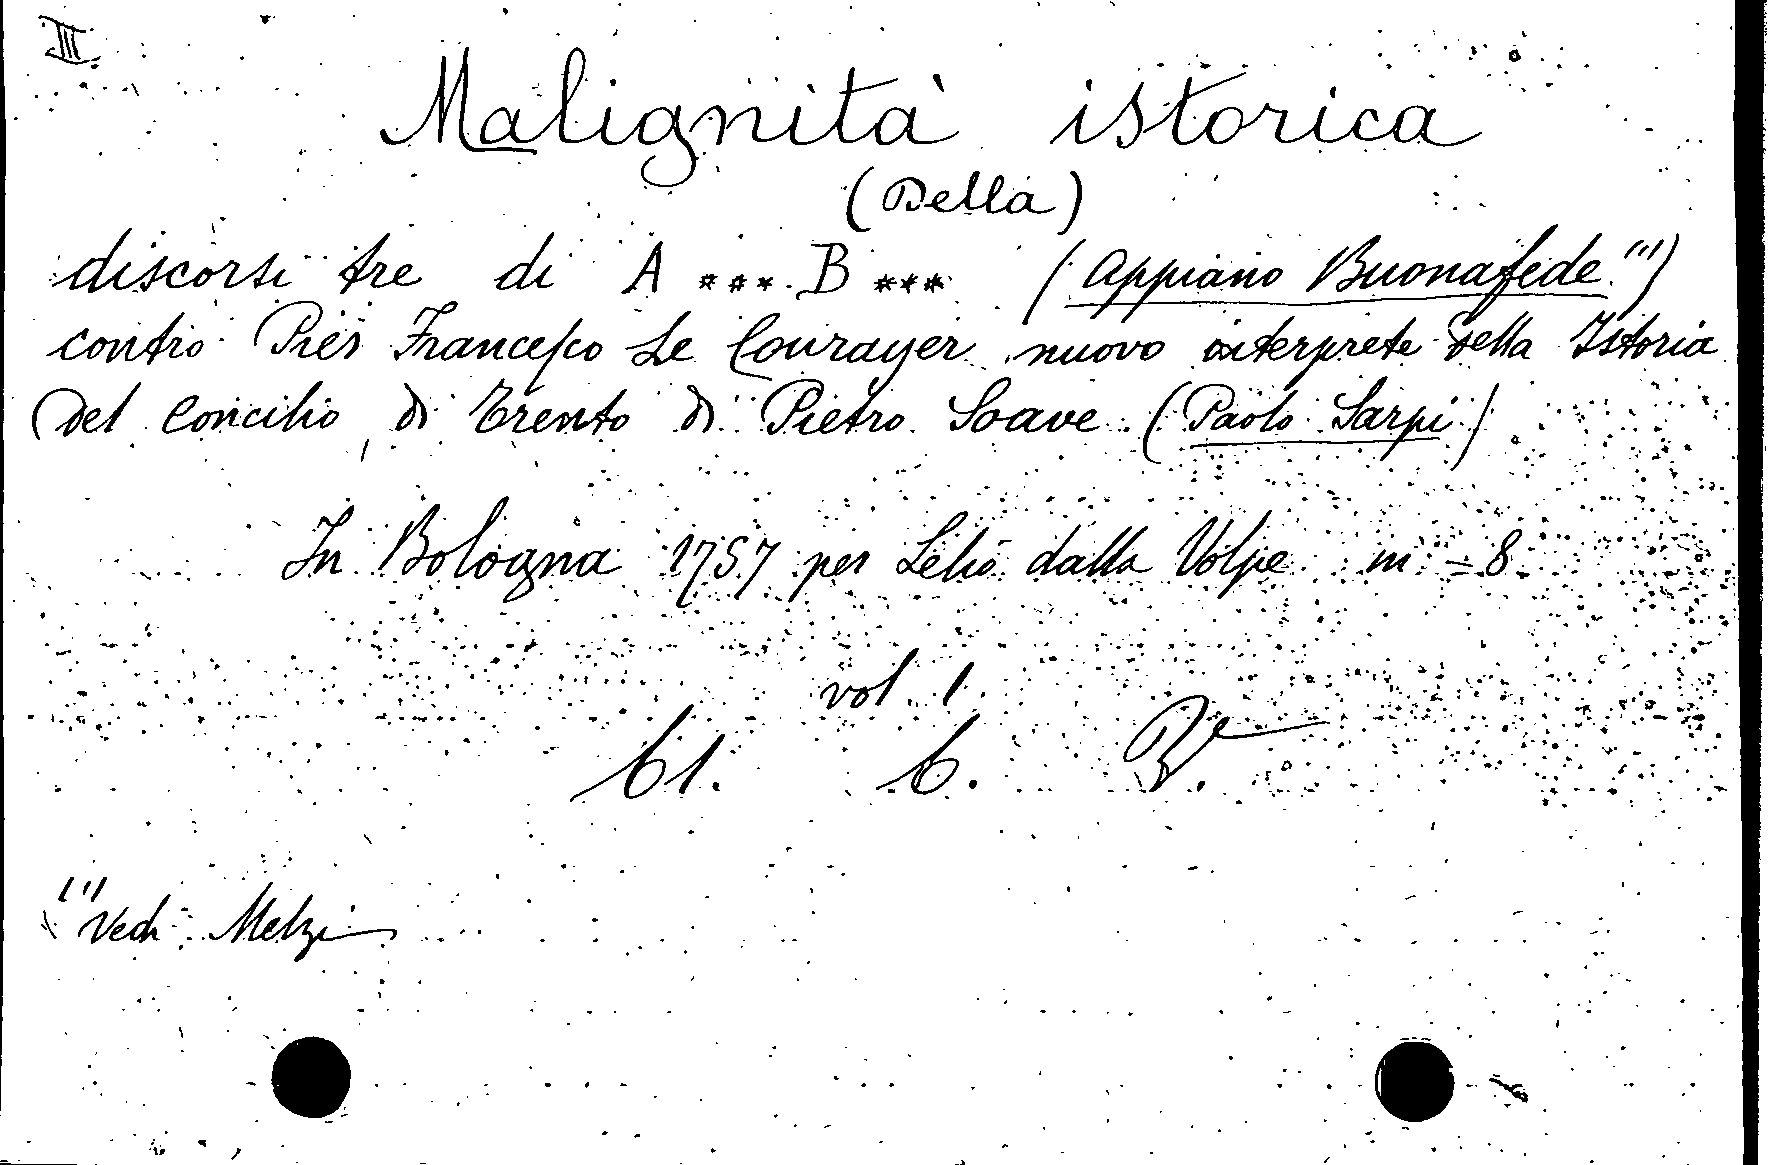 III
Malignità istorica
(Della)
discorsi tre di A *** B *** (Appiano Buonafede (1))
contro Pier Francesco Le Courayer nuovo interprete della Istoria
del Concilio di Trento di Pietro Soave (Paolo Sarpi)
In Bologna 1757 per Lelio dalla Volpe in = 8
vol. 1.
61. 6.
(1) Vedi Melzi